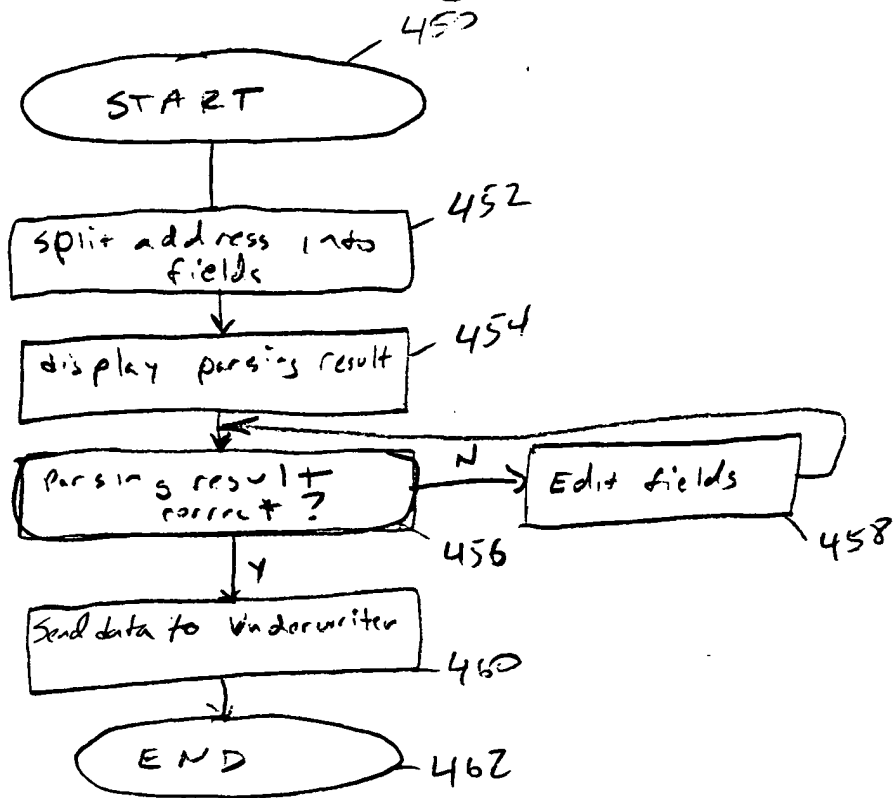 450
START
452
split address into
fields
454
display parsing result
N
parsing result
correct?
Edit fields
456
458
Y
Send data to Underwriter
460
END
462